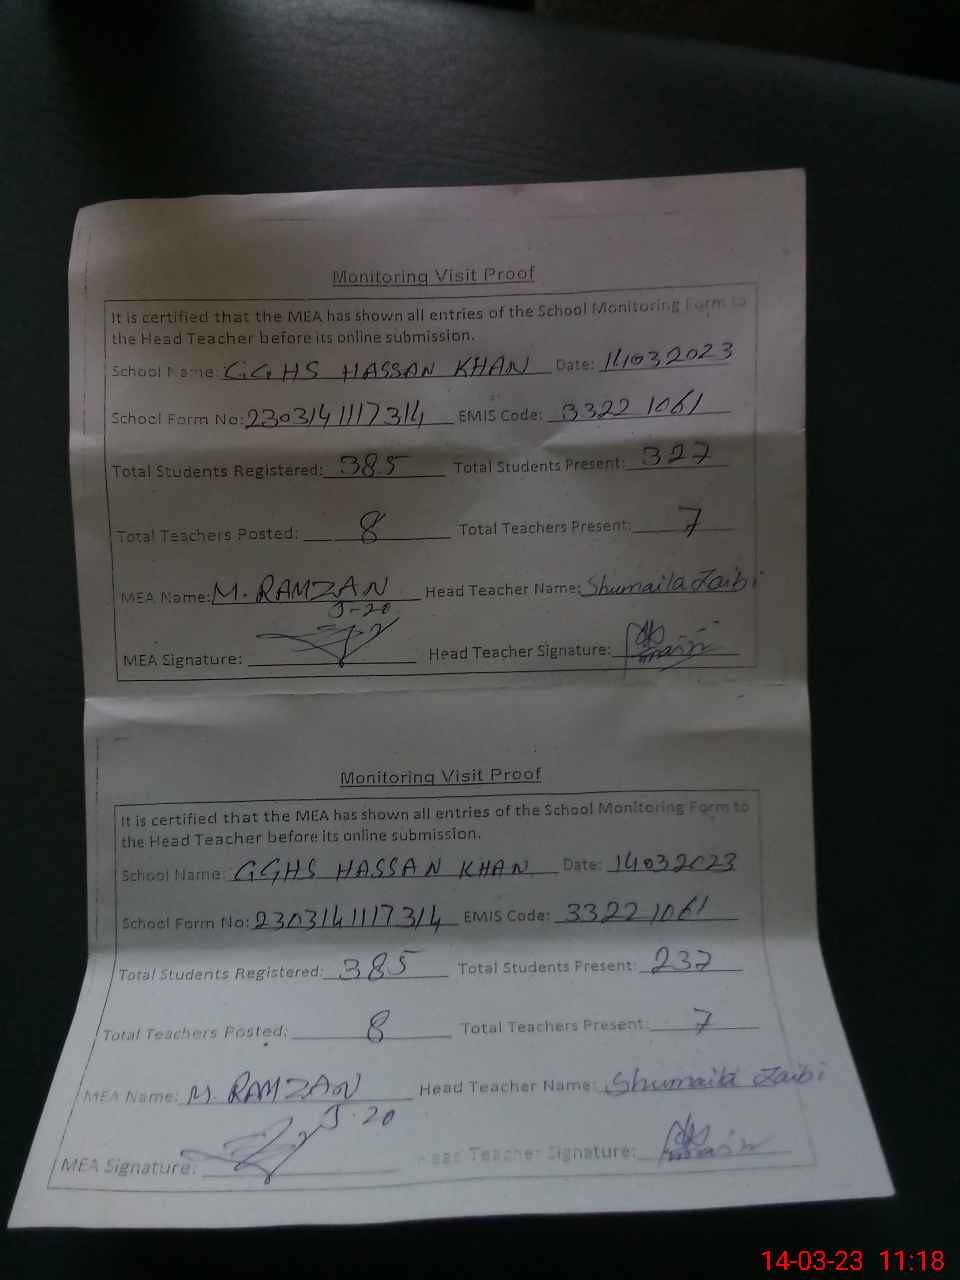 Monitoring Visit Proof
It is certified that the MEA has shown all entries of the School Monitoring Form to
the Head Teacher before its online submission.
School Name: GGHS HASSAN KHAN Date: 14032023
School Form No: 2303141117314 EMIS Code: 33221061
Total Students Registered: 385 Total Students Present: 327
Total Teachers Posted: 8 Total Teachers Present: 7
MEA Name: M. RAMZAN Head Teacher Name: Shumaila Zaibi
J-20
MEA Signature: Head Teacher Signature:
Monitoring Visit Proof
It is certified that the MEA has shown all entries of the School Monitoring Form to
the Head Teacher before its online submission.
School Name: GGHS HASSAN KHAN Date: 14032023
School Form No: 2303141117314 EMIS Code: 33221061
Total Students Registered: 385 Total Students Present: 237
Total Teachers Posted: 8 Total Teachers Present: 7
MEA Name: M. RAMZAN Head Teacher Name: Shumaila Zaibi
J-20
MEA Signature: Head Teacher Signature:
14-03-23 11:18